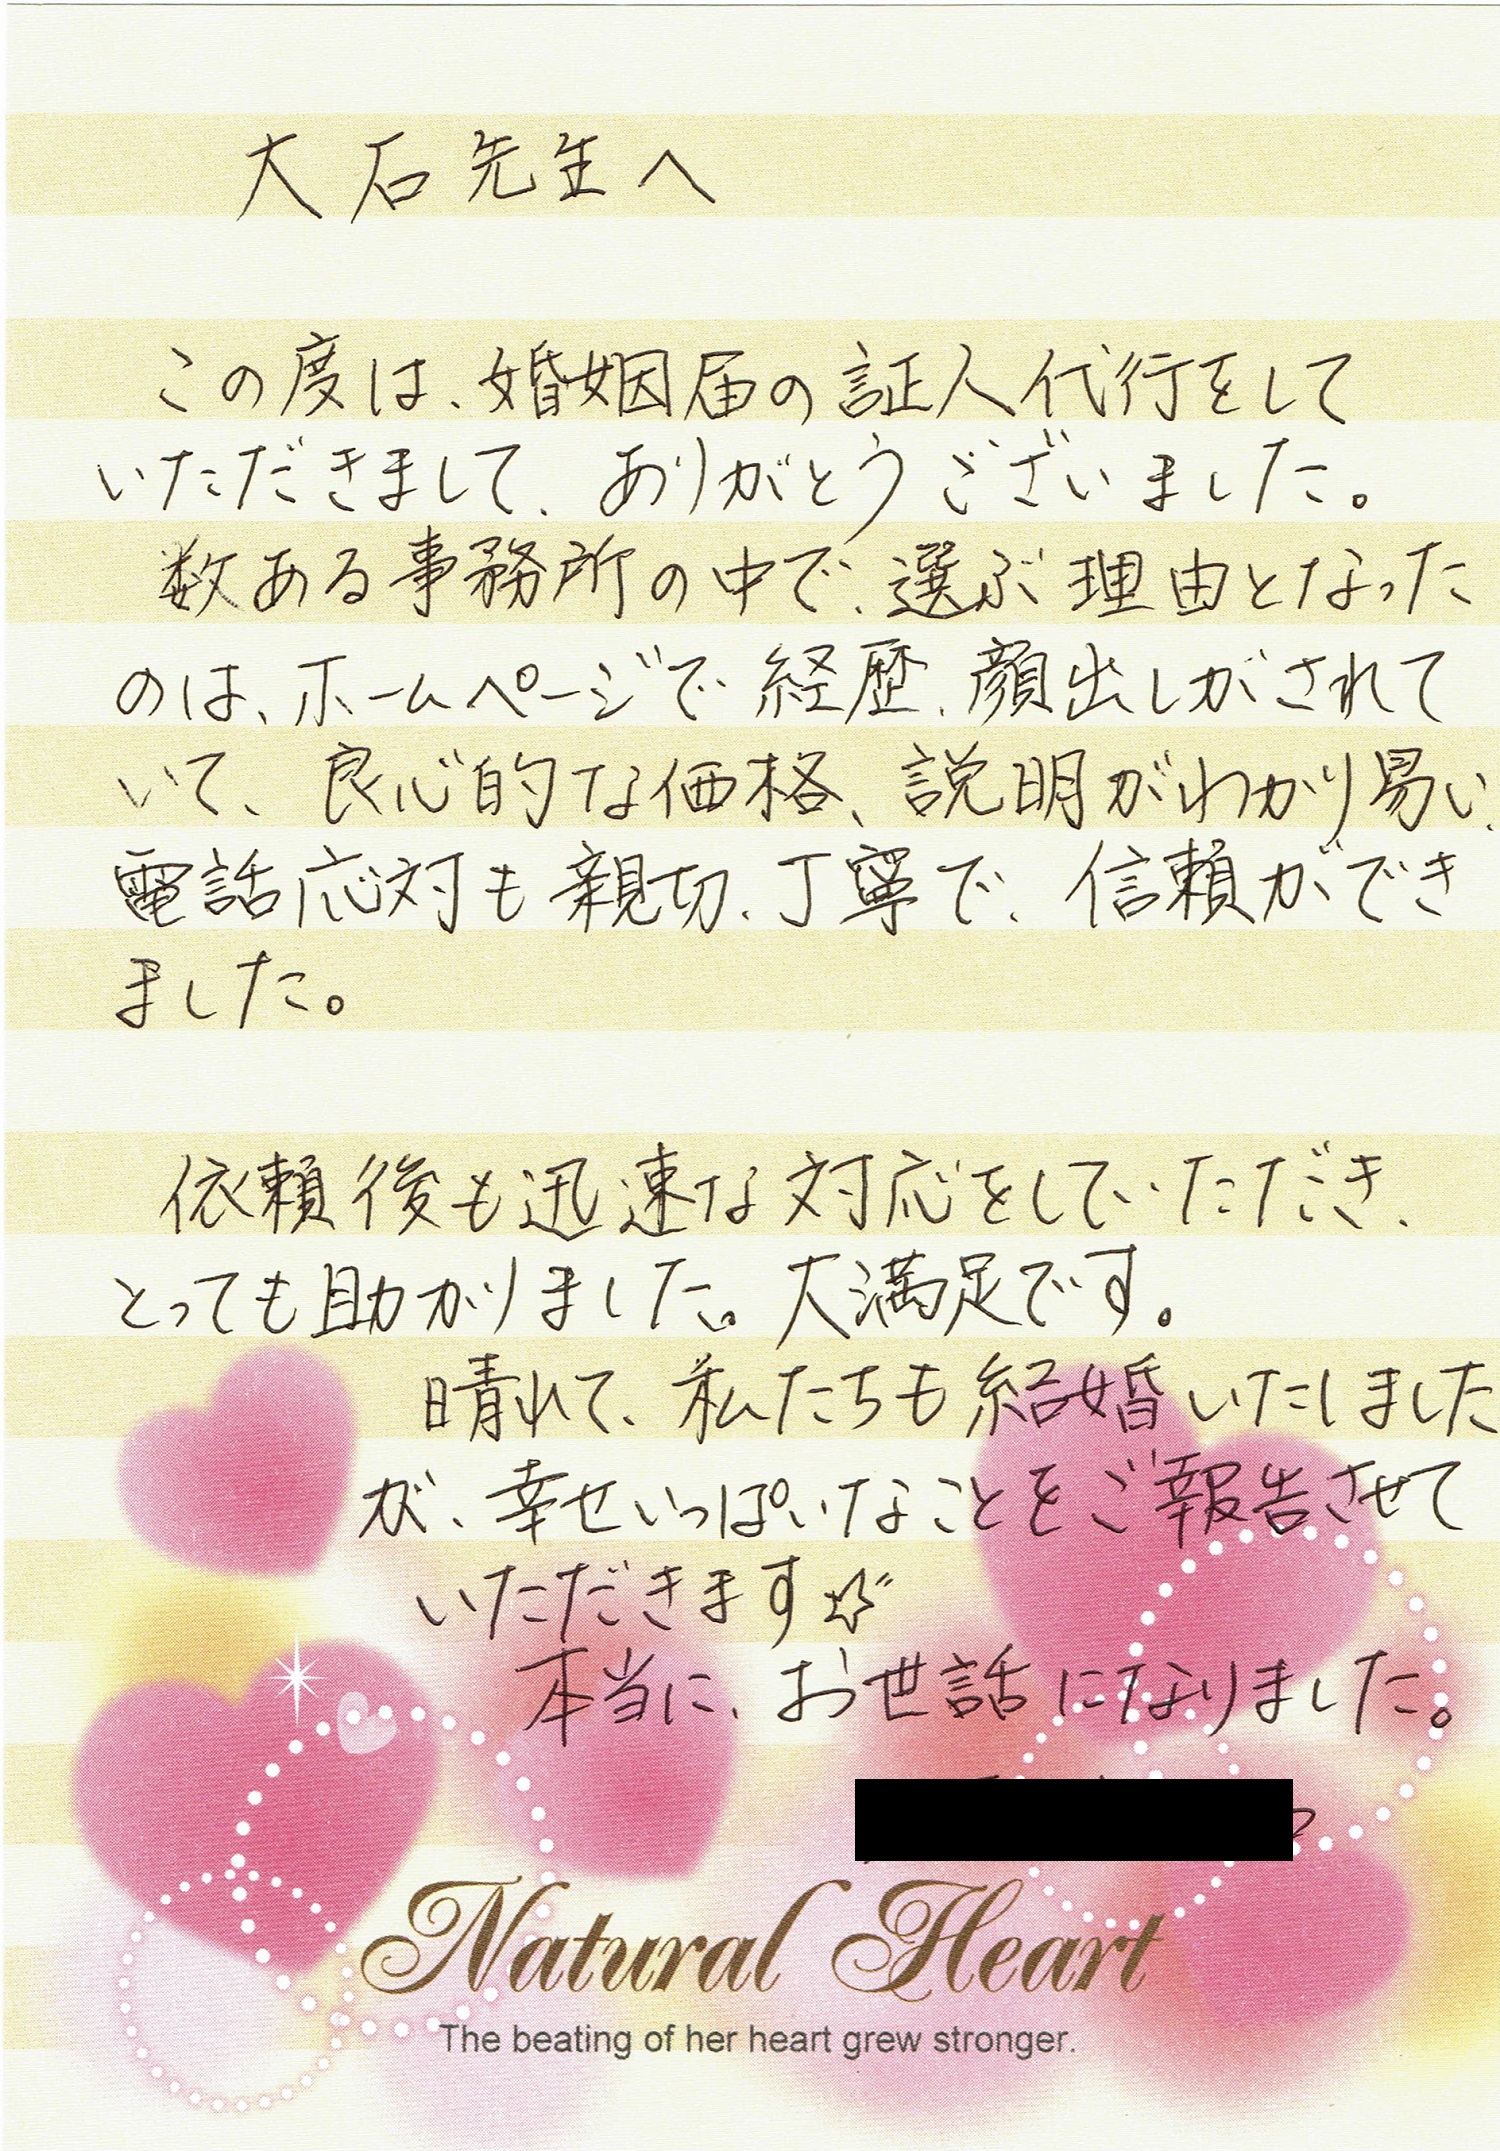 大石先生へ
この度は、婚姻届の証人代行をして
いただきまして、ありがとうございました。
数ある事務所の中で、選ぶ理由となった
のは、ホームページで経歴、顔出しがされて
いて、良心的な価格、説明がわかり易い、
電話応対も親切、丁寧で、信頼ができ
ました。
依頼後も迅速な対応をしていただき、
とっても助かりました。大満足です。
晴れて、私たちも結婚いたしました
が、幸せいっぱいなことをご報告させて
いただきます☆
本当に、お世話になりました。
Natural Heart
The beating of her heart grew stronger.